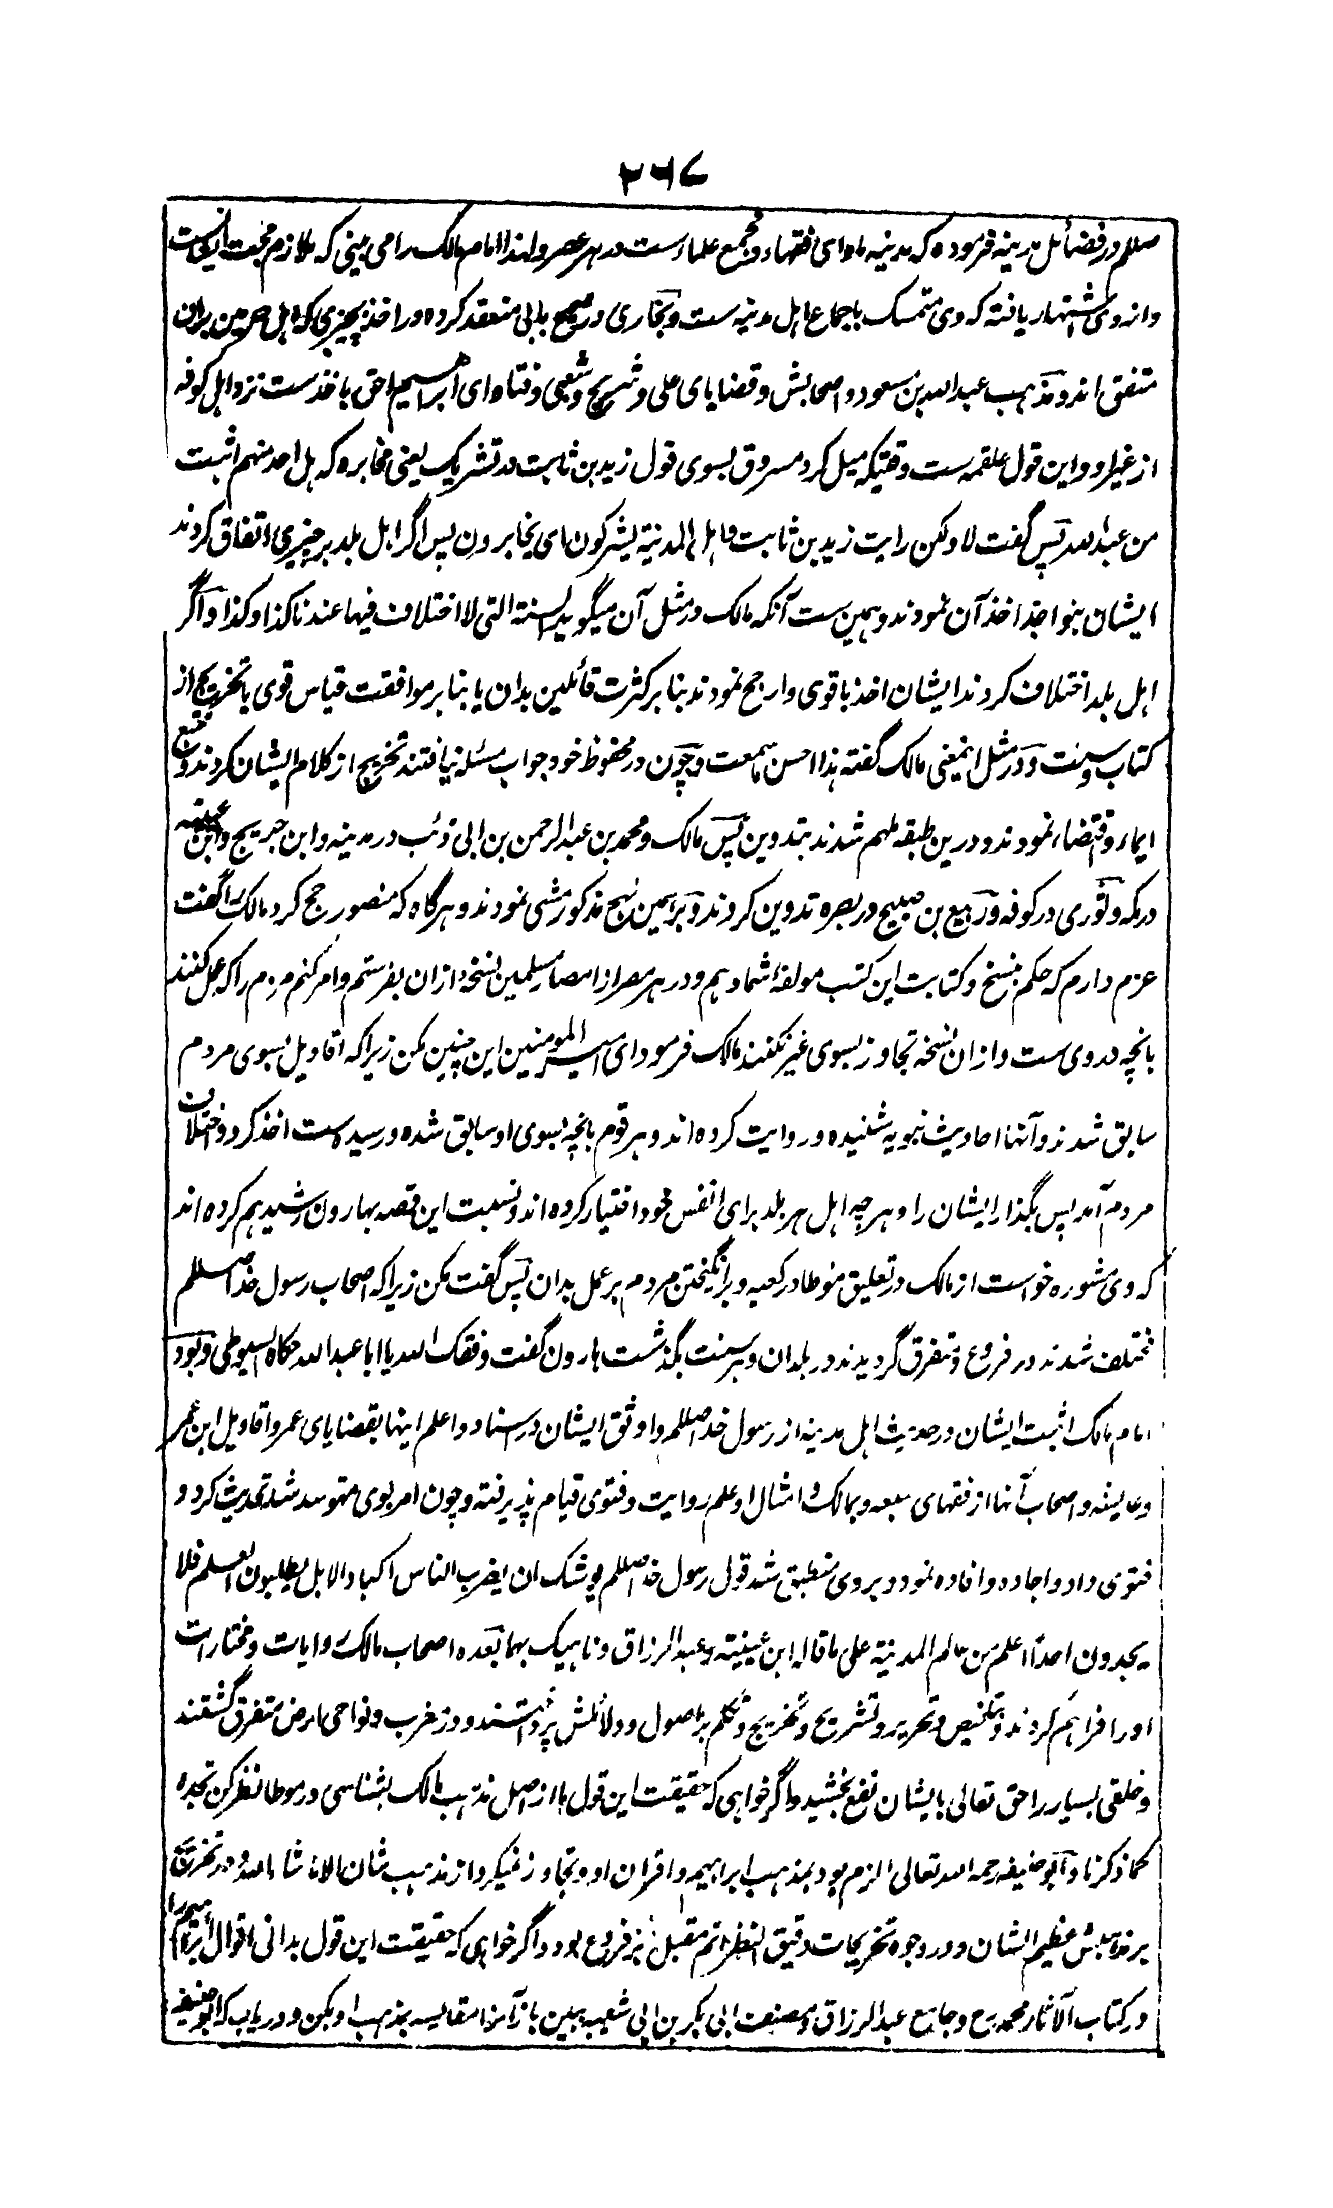 ۲۶۷
صللم در فضائل مدینه فرموده که مدینه ماوای فقهاء و مجمع علماءست در هر عصر ولهذا امام مالک را می بینی که ملازم محجت ایشانست
و از وی اشتهار یافته که وی متمسک باجماع اهل مدینه ست و بخاری در صحیح بابی منعقد کرده در اخذ بچیزی که اهل حرمین بران
متفق اند و مذهب عبدالله بن مسعود و اصحابش و قضایای علی و شریح و شعبی و فتاوای ابراهیم احق باخذست نزد اهل کوفه
از غیر او و این قول علقمه ست وقتیکه میل کرد مسروق بسوی قول زید بن ثابت در تشریک یعنی مخابره که هل احد منهم اثبت
من عبدالله پس گفت لا ولکن رایت زید بن ثابت و اهل المدینة یشرکون ای یخابرون پس اگر اهل بلد بر چیزی اتفاق کردند
ایشان بنواجذ اخذ آن نمودند و همین ست آنکه مالک در مثل آن میگوید السنة التی لا اختلاف فیها عندنا کذا و کذا و اگر
اهل بلد اختلاف کردند ایشان اخذ باقوی و ارجح نمودند بنا بر کثرت قائلین بدان یا بنا بر موافقت قیاس قوی یا تخریج از
کتاب و سنت و در مثل اینمعنی مالک گفته هذا احسن ما سمعت و چون در محفوظ خود جواب مسئله نیافتند تخریج از کلام ایشان کردند و تتبع
ایماء و اقتضاء نمودند و درین طبقه ملهم شدند بتدوین پس مالک و محمد بن عبدالرحمن بن ابی ذئب در مدینه و ابن جریج و ابن عیینه
در مکه و ثوری در کوفه و ربیع بن صبیح در بصره تدوین کردند و بر همین نهج مذکور مشی نمودند و هر گاه که منصور حج کرد مالک را گفت
عزم دارم که حکم بنسخ و کتابت این کتب مولفه شما دهم و در هر مصر از امصار مسلمین نسخه ازان بفرستم و امر کنم مردم را که عمل کنند
بانچه در وی ست و ازان نسخه تجاوز بسوی غیر نکنند مالک فرمود ای امیر المومنین این چنین مکن زیرا که اقاویل بسوی مردم
سابق شدند و آنها احادیث نبویه شنیده و روایت کرده اند و هر قوم بانچه بسوی او سابق شده و رسیده ست اخذ کرد و اختلاف
مردم آمد پس بگذار ایشان را و هر چه اهل هر بلد برای انفس خود اختیار کرده اند و نسبت این قصه بهارون رشید هم کرده اند
که وی مشوره خواست از مالک در تعلیق موطا در کعبه و برانگیختن مردم بر عمل بدان پس گفت مکن زیرا که اصحاب رسول خدا صللم
مختلف شدند در فروع و متفرق گردیدند در بلدان و هر سنت بگذشت هارون گفت وفقک الله یا ابا عبدالله حکاه السیوطی و بود
امام مالک اثبت ایشان در حدیث اهل مدینه از رسول خدا صللم و اوثق ایشان در اسناد و اعلم اینها بقضایای عمر و اقاویل ابن عمر
و عایشه و اصحاب آنها از فقهای سبعه و بمالک و امثال او علم روایت و فتوی قیام پذیرفته و چون امر بوی متوسد شد تحدیث کرد و
فتوی داد و اجاده و افاده نمود و بر وی منطبق شد قول رسول خدا صللم یوشک ان یضرب الناس اکباد الابل یطلبون العلم فلا
یجدون احداً اعلم من عالم المدینة علی ما قاله ابن عیینة و عبدالرزاق و ناهیک بهما بعده اصحاب مالک روایات و مختارات
او را فراهم کردند و تلخیص و تحریر و تشریح و تخریج و تکلم بر اصول و دلائلش پرداختند و در غرب و نواحی ارض متفرق گشتند
و خلقی بسیار را حق تعالی بایشان نفع بخشید و اگر خواهی که حقیقت این قول ما از اصل مذهب مالک بشناسی در موطا نظر کن تجده
کما ذکرنا و ابو حنیفه رحمه الله تعالی الزم بود بمذهب ابراهیم و اقران او و تجاوز نمیکرد از مذهب شان الا ما شاء الله و در تخریج
بر مذهبش عظیم الشان و در وجوه تخریجات دقیق النظر اتم مقبل بر فروع بود و اگر خواهی که حقیقت این قول بدانی اقوال ابراهیم را
در کتاب الآثار محمد رح و جامع عبدالرزاق و مصنف ابی بکر بن ابی شیبه ببین باز آنرا مقایسه بمذهب او بکن و دریاب که ابو حنیفه